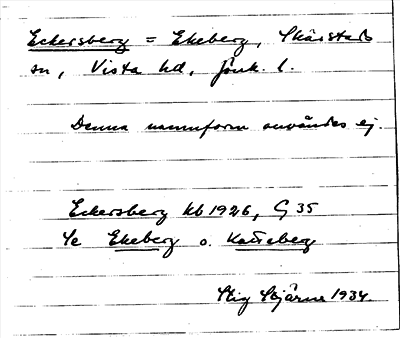 Eckersberg = Ekeberg, Skärstads
sn, Vista hd, Jönk. l.
Denna namnform användes ej.
Eckersberg kb 1926, G 35
Se Ekeberg o.
Stig Stjärne 1934.